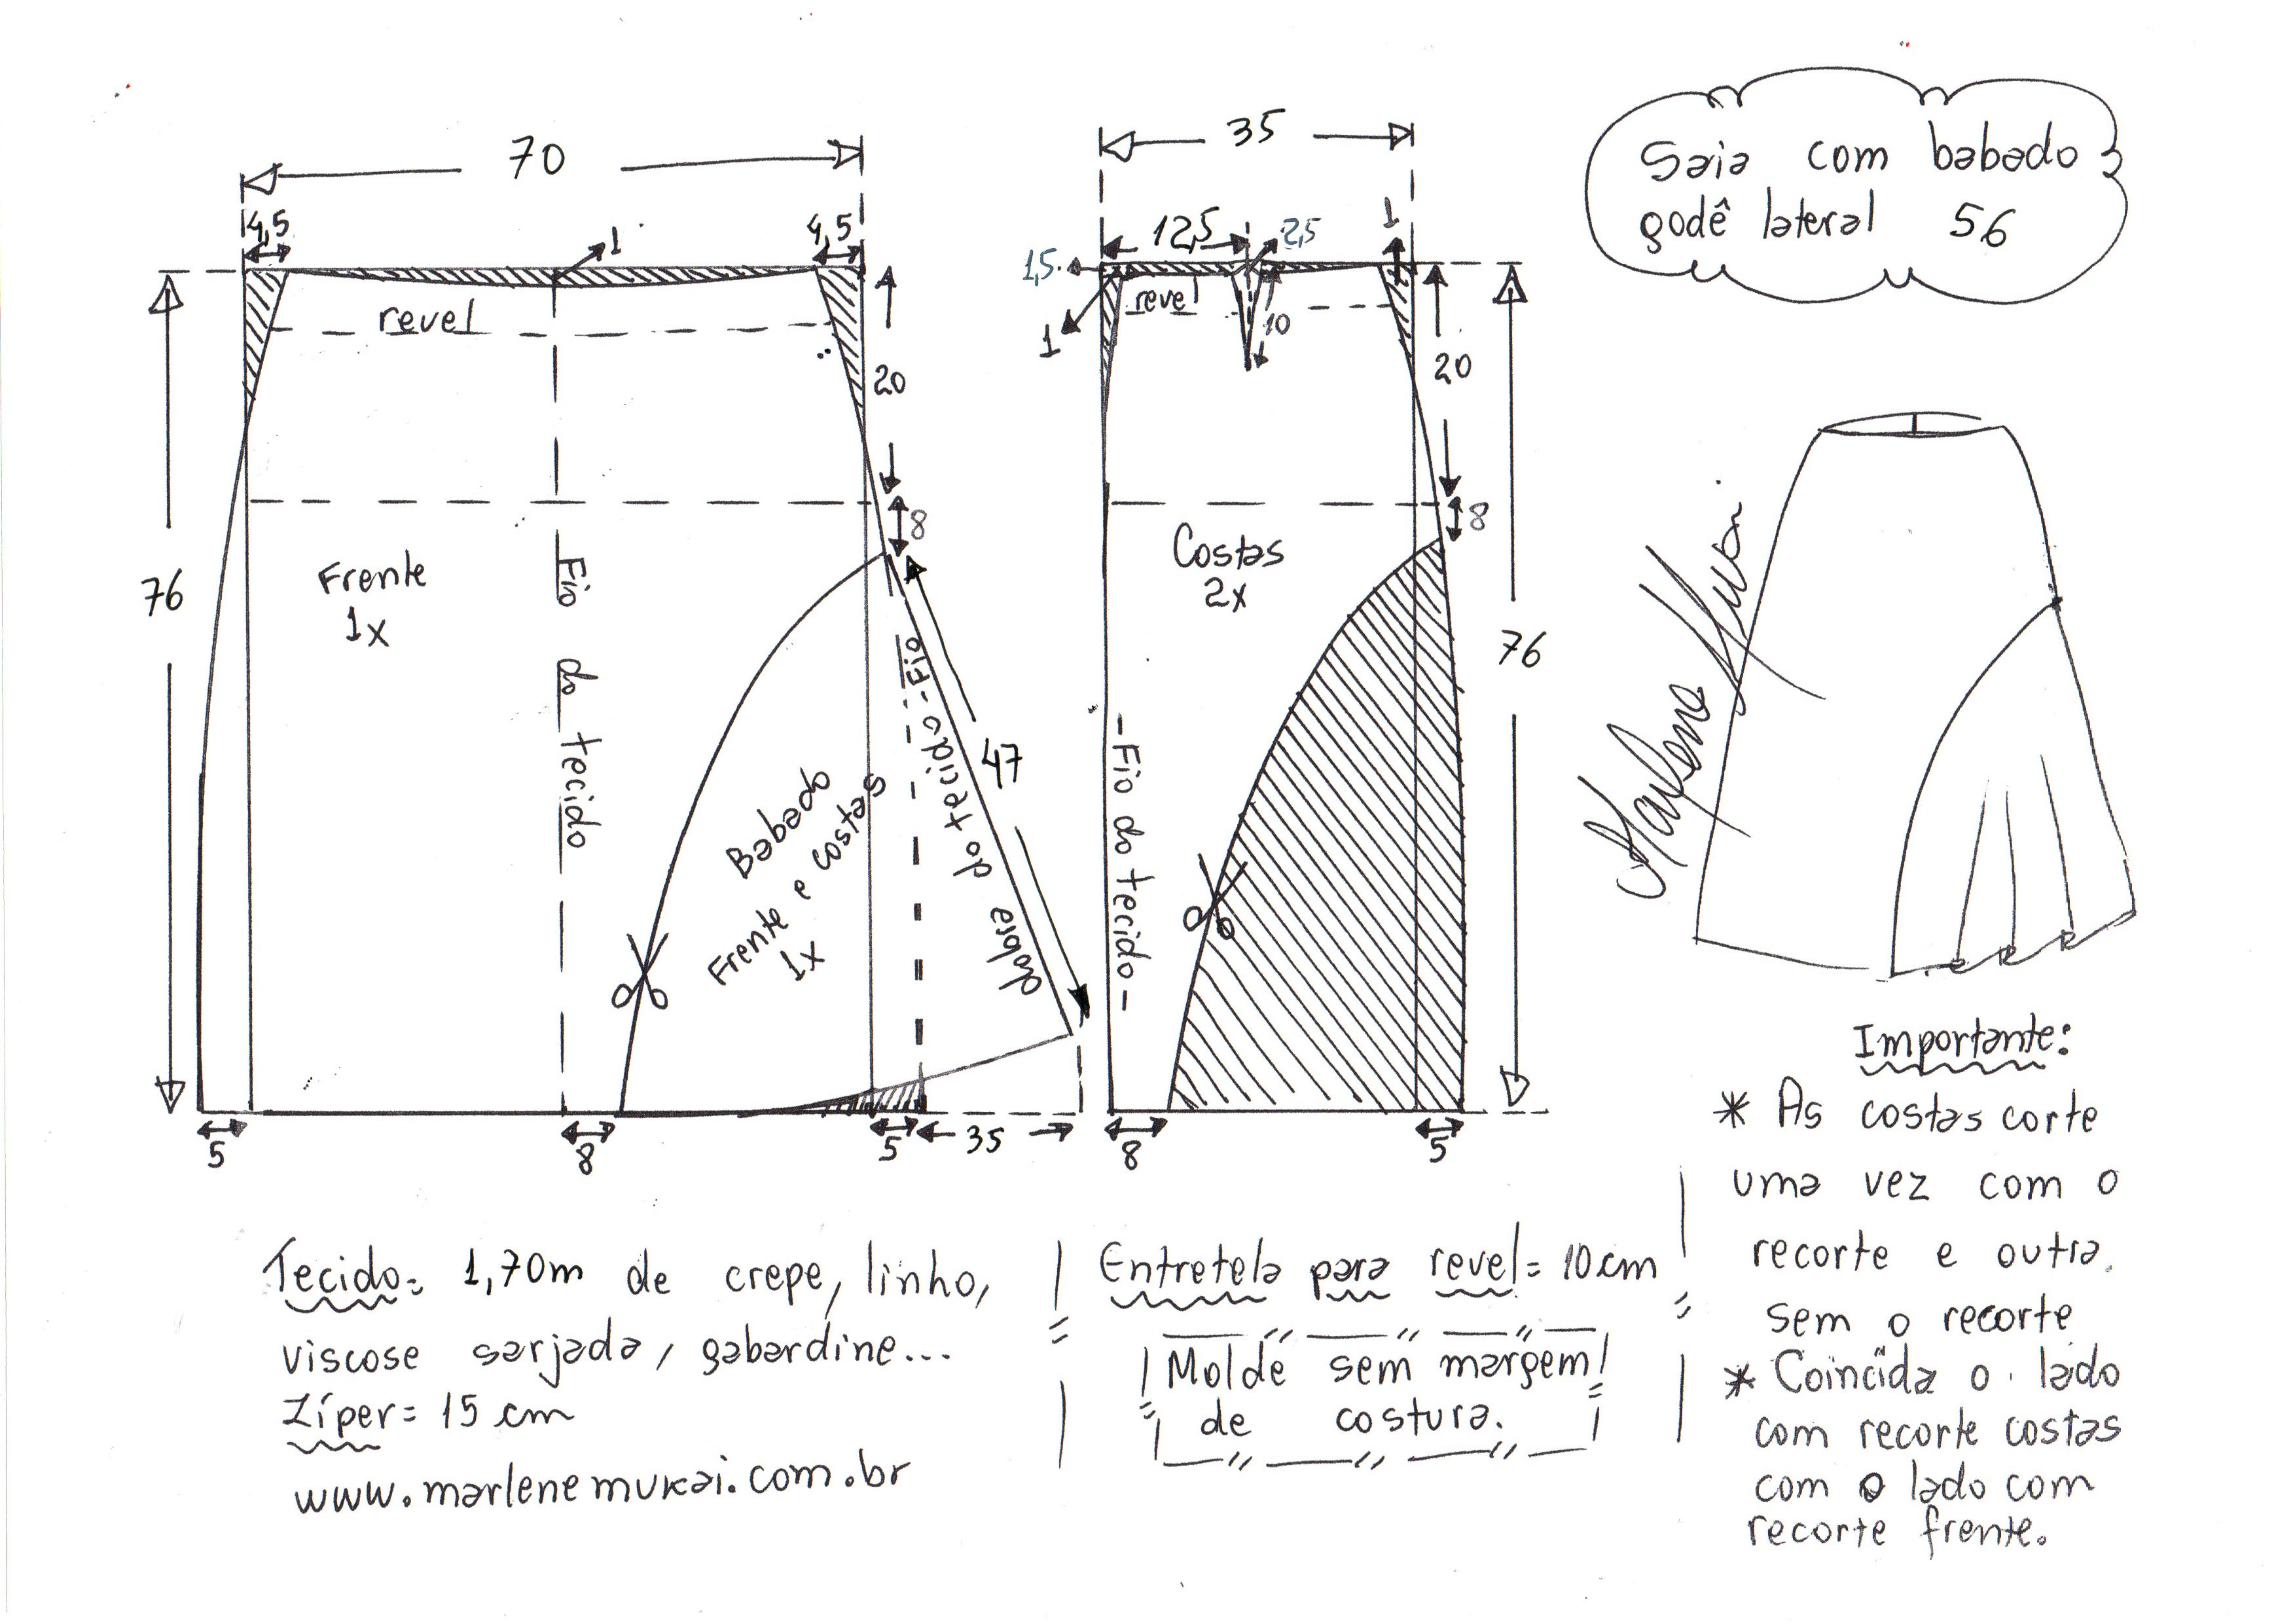 Saia com babado
godê lateral 56
70
4,5
4,5
1
revel
20
8
76
Frente
1x
Fio do tecido
Babado
Frente e costas
1x
Fio do tecido
dobra
47
5
8
5
35
35
12,5
2,5
1
1,5
revel
1
10
20
8
Costas
2x
76
Fio do tecido
8
5
Marlene Mukai
Tecido: 1,70m de crepe, linho,
viscose sarjada, gabardine...
Zíper= 15 cm
www.marlenemukai.com.br
Entretela para revel= 10 cm
Molde sem margem
de costura.
Importante:
* As costas corte
uma vez com o
recorte e outra
sem o recorte
* Coincida o lado
com recorte costas
com o lado com
recorte frente.